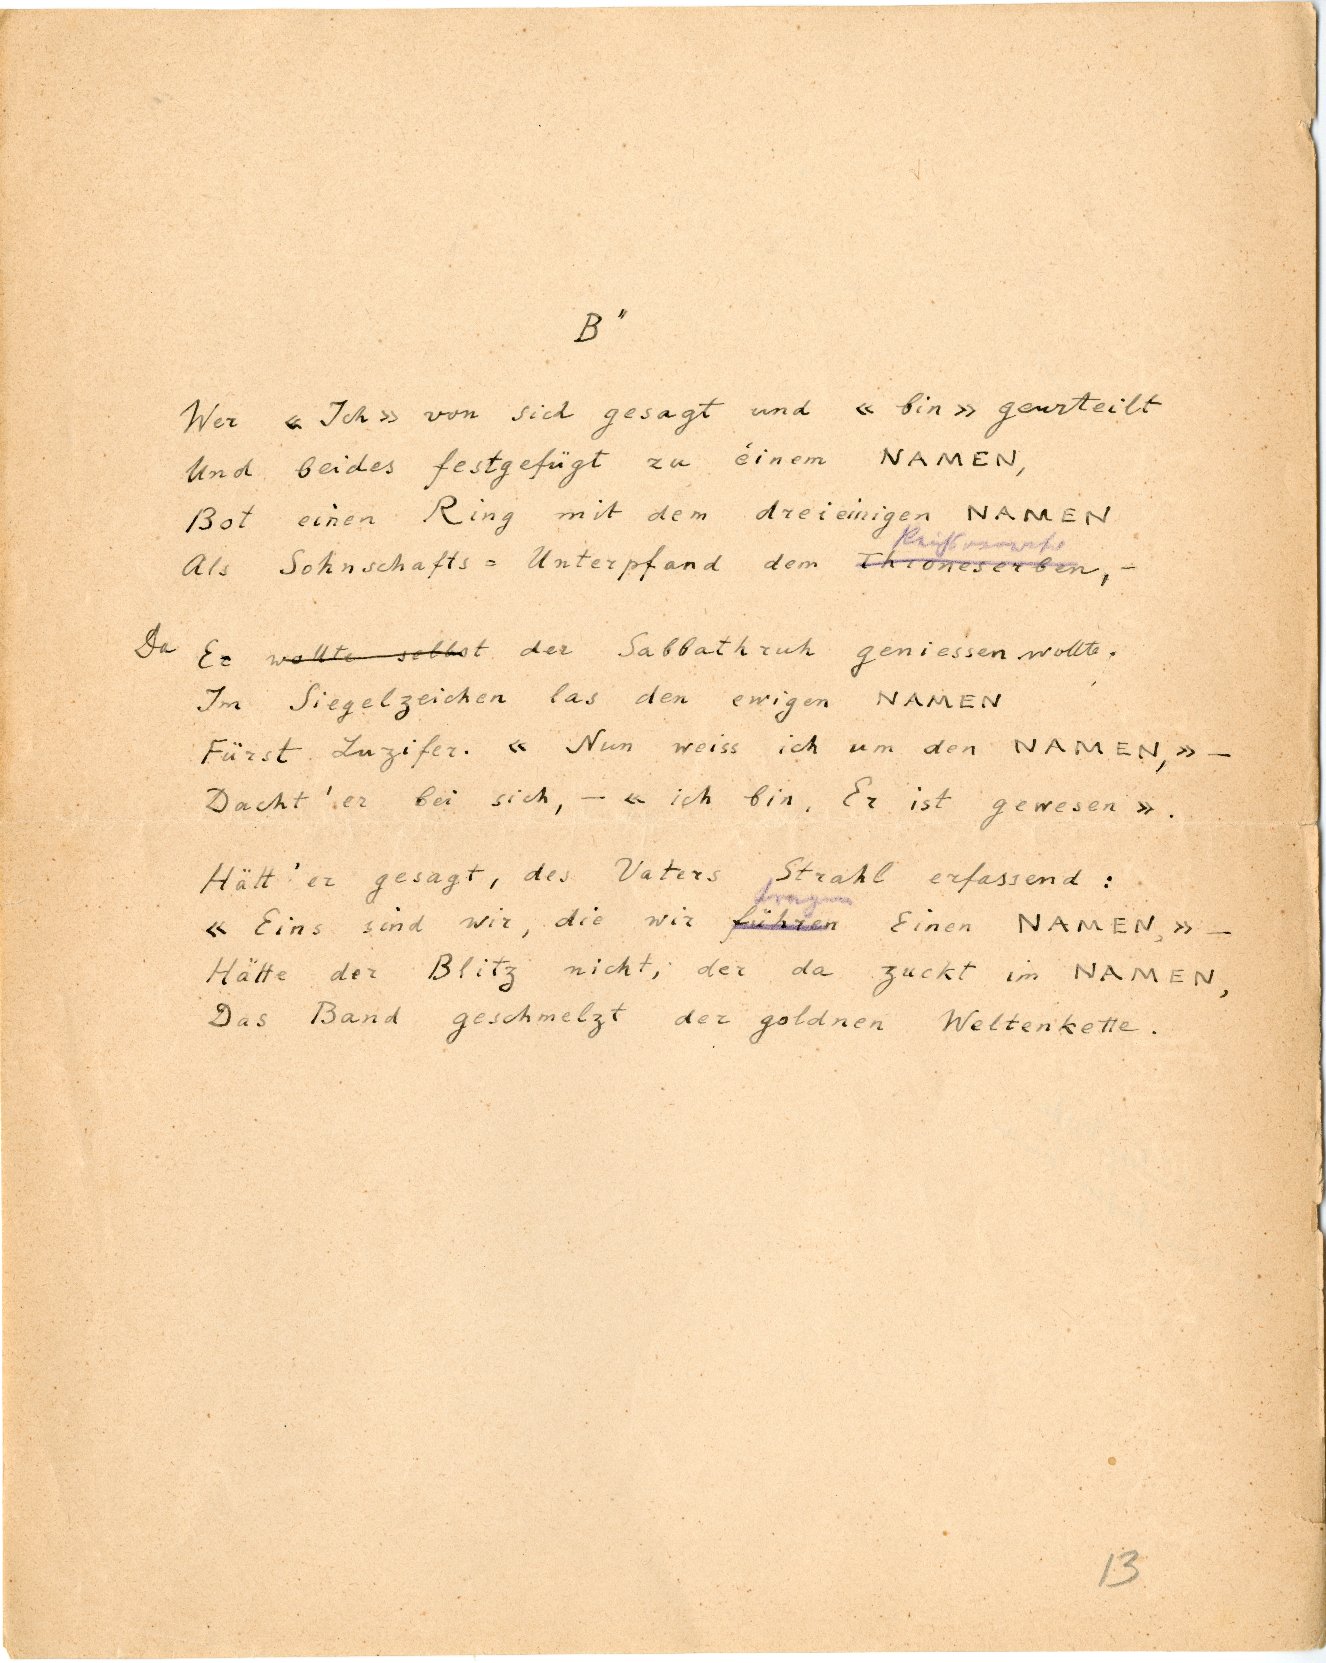 B"
Wer « Ich » von sich gesagt und « bin » geurteilt
Und beides festgefügt zu éinem NAMEN,
Bot einen Ring mit dem dreieinigen NAMEN
Als Sohnschafts = Unterpfand dem Throneserben, –
Da Er wollte selbst der Sabbathruh geniessen wollte.
Im Siegelzeichen las den ewigen NAMEN
Fürst Luzifer. « Nun weiss ich um den NAMEN, » –
Dacht' er bei sich, – « ich bin, Er ist gewesen ».
Hätt' er gesagt, des Vaters Strahl erfassend :
« Eins sind wir, die wir führen Einen NAMEN, » –
Hätte der Blitz nicht, der da zuckt im NAMEN,
Das Band geschmelzt der goldnen Weltenkette .
13